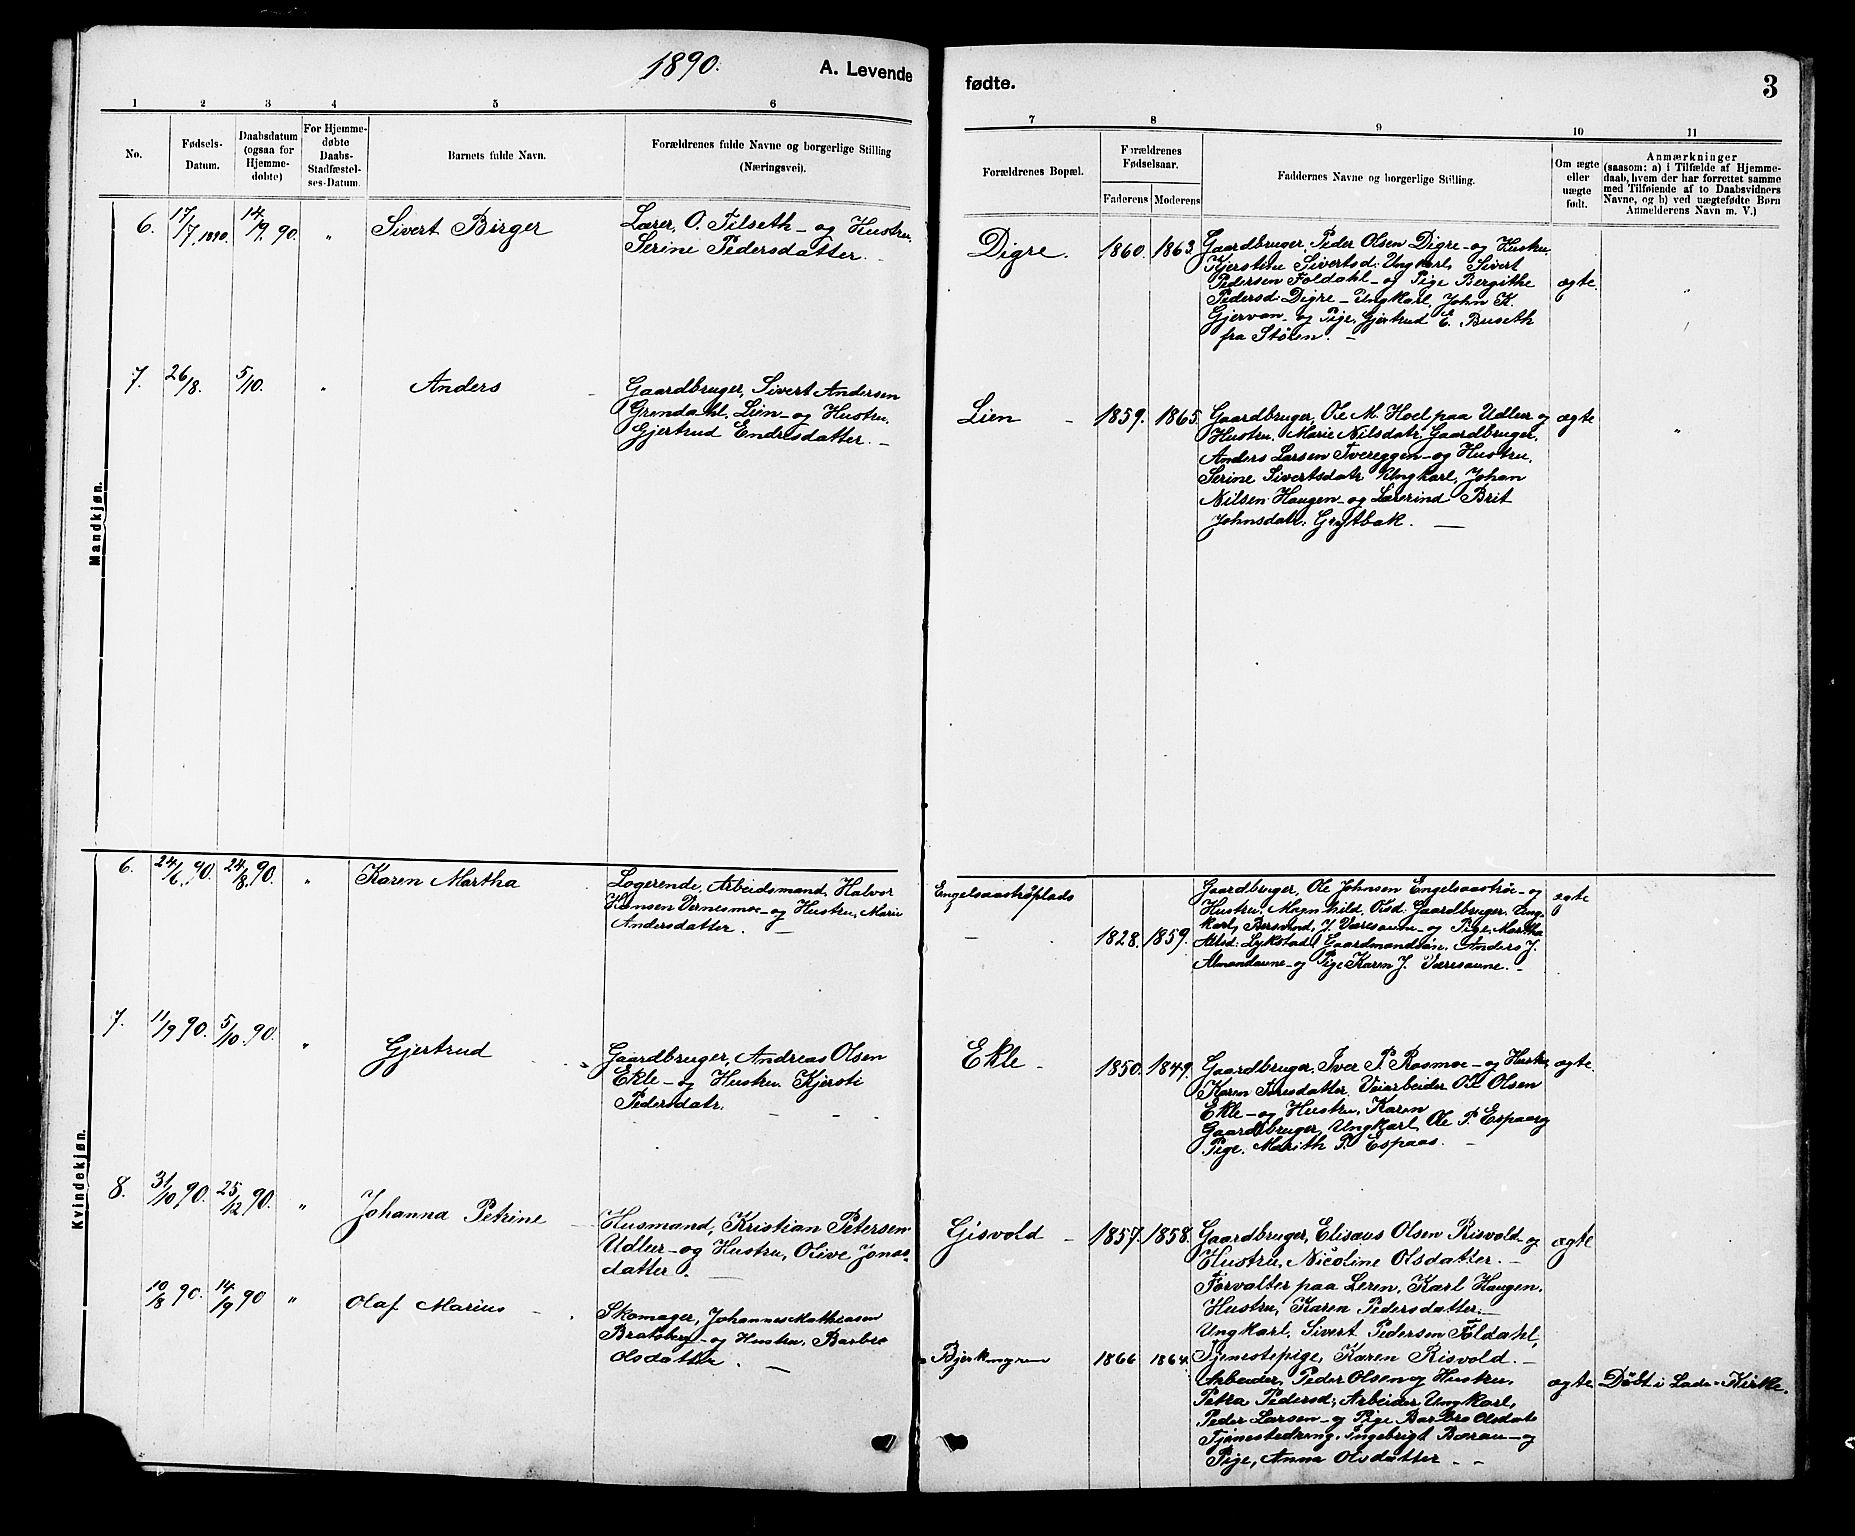 1890. A. Levende
fødte. 3
1 2 3 4 5 6
7 8 9 10 11
No.
Fødsels-
Datum.
Daabsdatum
(ogsaa for
Hjemme-
døbte)
For Hjemme-
døbte
Daabs-
Stadfæstel-
ses-Datum.
Barnets fulde Navn.
Forældrenes fulde Navne og borgerlige Stilling
(Næringsvei).
Forældrenes Bopæl.
Forældrenes
Fødselsaar.
Faderens Moderens
Faddernes Navne og borgerlige Stilling.
Om ægte
eller
uægte
født.
Anmærkninger
(saasom: a) i Tilfælde af Hjemme-
daab, hvem der har forrettet samme
med Tilføiende af to Daabsvidners
Navne, og b) ved uægtefødte Børn
Anmelderens Navn m. V.)
Mandkjøn.
6. 17/7, 1890. 14/9. 90. " Sivert Birger
Lærer, O. Tilseth - og Hustru,
Serine Pedersdatter. -
Digre. 1860. 1863.
Gaardbruger, Peder Olsen Digre - og Hustru
Kjerstine Sivertsd: Ungkarl, Sivert
Pedersen Foldahl - og Pige Bergithe
Pedersd: Digre - Ungkarl, John K.
Gjervan - og Pige, Gjertrud E. Buseth
fra Støren. -
ægte. "
7. 26/8. 5/10. " Anders
Gaardbruger, Sivert Andersen
Grendahl, Lien - og Hustru,
Gjertrud Endresdatter. -
Lien - 1859. 1865.
Gaardbruger, Ole M. Hoel, paa Udlur og
Hustru, Marie Nilsdatr. Gaardbruger,
Anders Larsen Tvereggen - og Hustru,
Serine Sivertsdatr Ungkarl, Johan
Nilsen Haugen - og Lærerind Brit
Johnsdatr. Grøtbak. -
ægte "
Kvindekjøn.
6. 24/6, 90. 24/8, 90. " Karen Martha
Logerende, Arbeidsmand, Halvor
Hansen Vernesmoe - og Hustru, Marie
Andersdatter. -
Engelsaastrøplads
- 1828. 1859.
Gaardbruger, Ole Johnsen Engelsaastrøe - og
Hustru, Magnhild, Olsd: Gaardbruger. Ung-
karl, Bersvend, J. Væresaune - og Pige, Martha
Arntsd: Lykstad, Gaardmandsøn, Anders J.
Almaadaune - og Pige Karen J. Væresaune. -
ægte
7. 11/9 90. 5/10. 90. " Gjertrud
Gaardbruger, Andreas Olsen
Ekle - og Hustru, Kjersti
Pedersdatr. - -
Ekle - 1850. 1849.
Gaardbruger, Iver P. Rosmoe - og Hustru,
Karen Toresdatter. Veiarbeider Ole Olsen
Ekle - og Hustru, Karen
Gaardbruger, Ungkarl, Ole P. Espaas og
Pige, Marith P. Espaas. -
ægte.
8. 31/10, 90. 25/12 90. " Johanna Petrine
Husmand, Kristian Petersen
Udlur - og Hustru, Olive Jonas-
datter. -
Gisvold - 1857. 1858.
Gaardbruger, Elisæus Olsen Risvold - og
Hustru, Nicoline Olsdatter. -
Forvalter paa Leren, Karl Haugen,
Hustru, Karen Pedersdatter. -
Ungkarl, Sivert Pedersen Foldahl,
Tjenestepige, Karen Risvold. -
ægte
10/8 90. 14/9 90 " Olaf Marius -
Skomager, Johannes Mathiasen
Bratsberg - og Hustru, Barbro
Olsdatter. -
Bjerkmyren 1866 1864.
Arbeider, Peder Olsen og Hustru,
Petra Pedersd; Arbeider Ungkarl,
Peder Larsen - og Pige Barbro Olsdatr
Tjenestedreng, Ingebrigt Borau - og
Pige, Anna Olsdatter - -
ægte Døbt i Lade - Kirke.